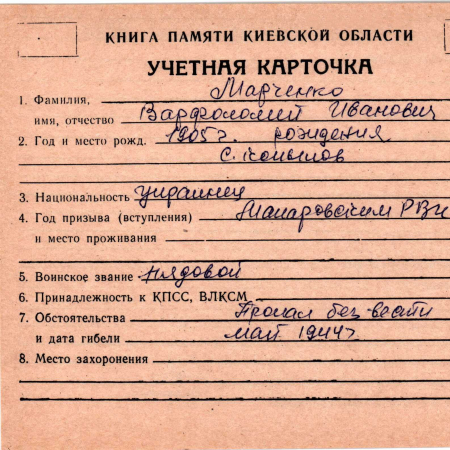 КНИГА ПАМЯТИ КИЕВСКОЙ ОБЛАСТИ
УЧЕТНАЯ КАРТОЧКА
1. Фамилия, Марченко
имя, отчество Варфоломий Иванович
2. Год и место рожд. 1905 г. рождения
с. Копылов
3. Национальность украинец
4. Год призыва (вступления) Макаровским РВК
и место проживания
5. Воинское звание рядовой
6. Принадлежность к КПСС, ВЛКСМ
7. Обстоятельства Пропал без вести
и дата гибели май 1944 г.
8. Место захоронения